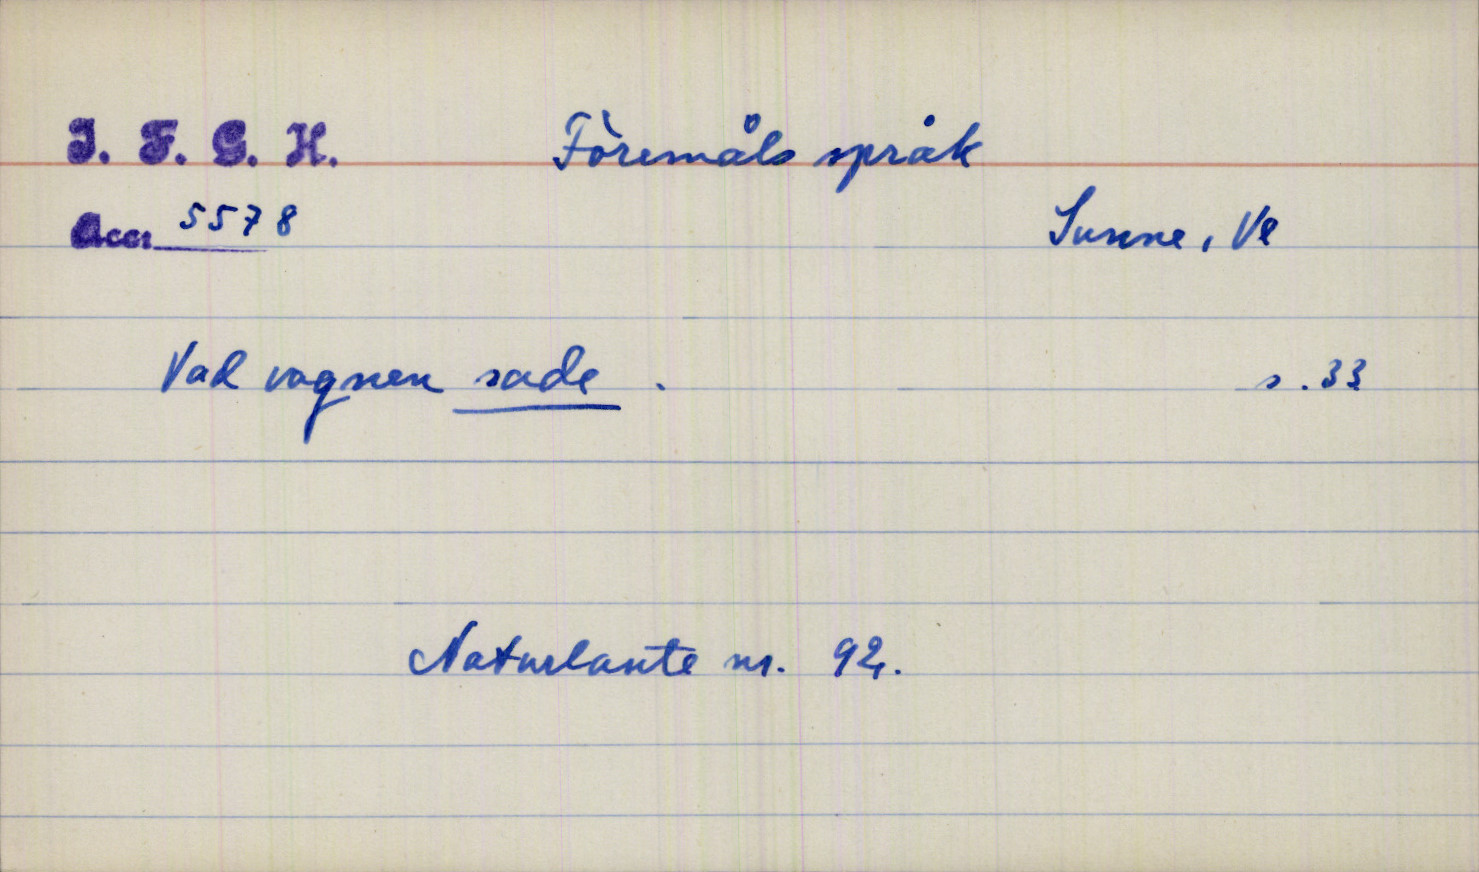 I. F. G. H. Föremåls språk
Acc: 5578 Sunne, Vl
Vad vagnen sade. s. 33
Naturlaute nr. 92.